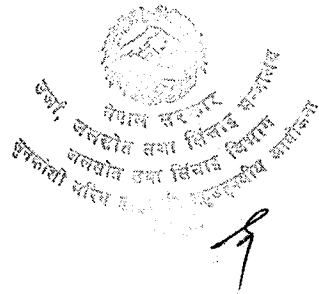 नेपाल सरकार
उर्जा, जलस्रोत तथा सिंचाई मन्त्रालय
जलस्रोत तथा सिंचाई विभाग
सुनकोशी मरिन बहुउद्देश्यीय आयोजना